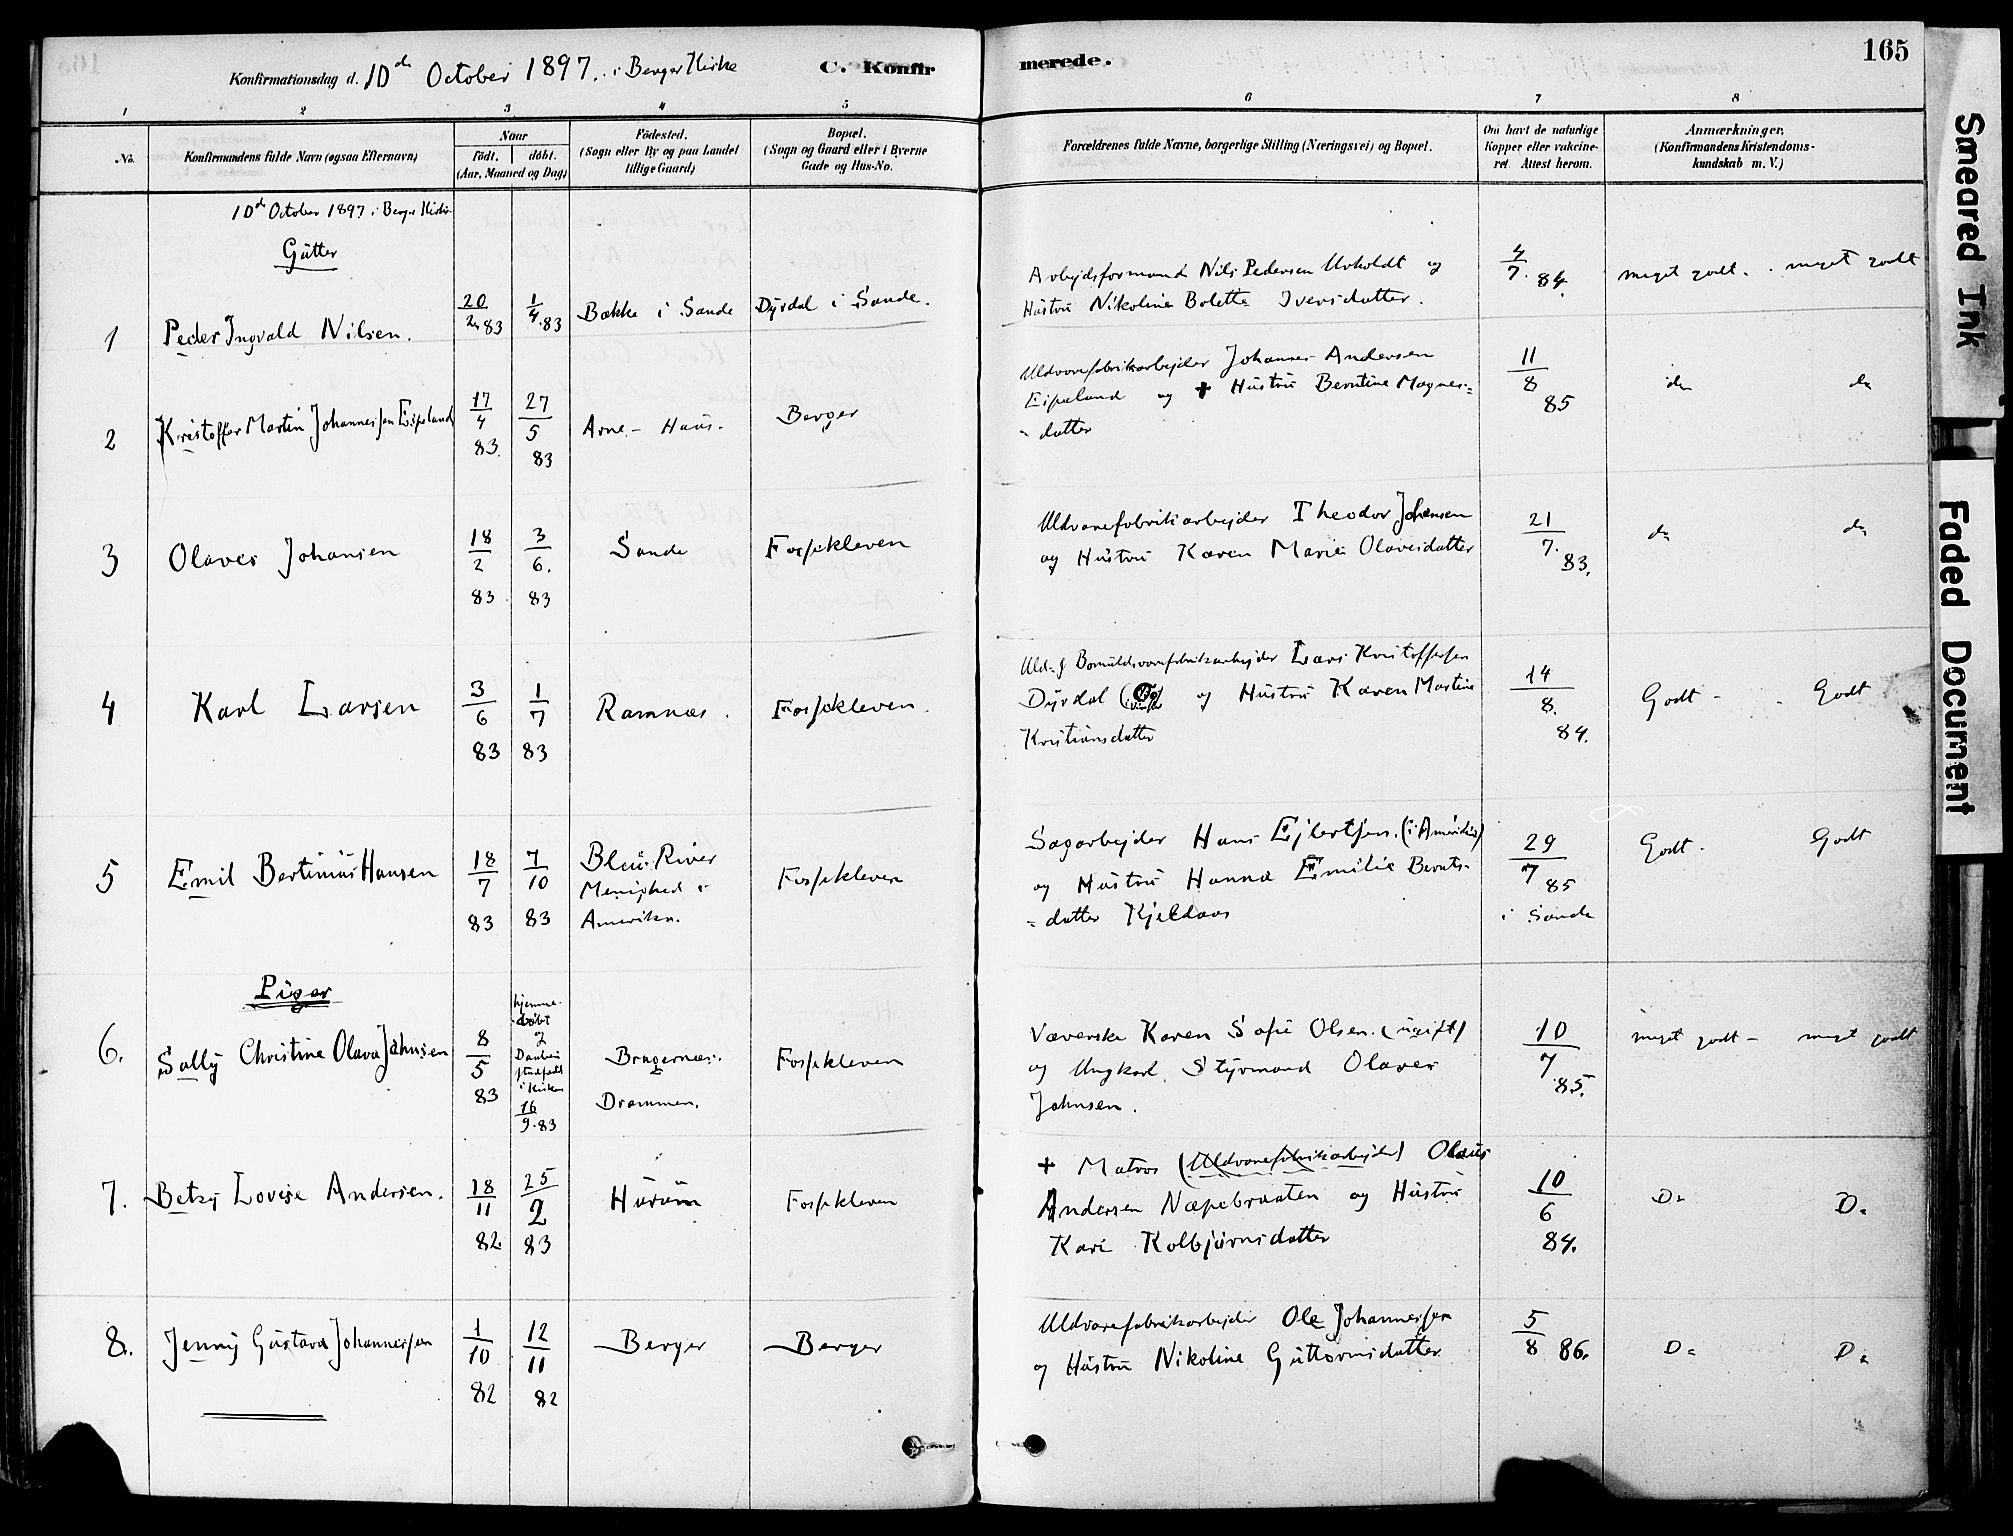 Konfirmationsdag d. 10de October 1897. i Berger Kirke
C. Konfirmerede.
165
1 2 3 4 5 6 7 8
No.
Konfirmandens fulde Navn (ogsaa Efternavn)
Naar
födt. döbt.
(Aar, Maaned og Dag)
Födested.
(Sogn eller By og paa Landet
tillige Gaard)
Bopæl.
(Sogn og Gaard eller i Byerne
Gade og Hus-No.
Forældrenes fulde Navne, borgerlige Stilling (Næringsvei) og Bopæl.
Om havt de naturlige
Kopper eller vakcine-
ret. Attest herom.
Anmærkninger.
(Konfirmandens Kristendoms-
kundskab m. V.)
10de October 1897 i Berger Kirke
Gutter
1 Peder Ingvald Nilsen.
20/2 83
1/4 83
Bække i Sande
Dyrdal i Sande.
Arbejdsformand Nils Pedersen Urholdt og
Hustru Nikoline Bolette Iversdatter.
4/7. 84.
meget godt. . meget godt
2 Kristoffer Martin Johannessen Eipeland
17/4 83.
27/5 83
Arne - Haus.
Berger
Uldvarefabrikarbejder Johannes Andersen
Eipeland og + Hustru Berntine Magnes=
= datter
11/8 85
do do
3 Olaves Johansen
18/2 83
3/6. 83
Sande
Fossekleven
Uldvarefabrikarbejder Theodor Johansen
og Hustru Karen Marie Olavesdatter
21/7. 83.
do do
4 Karl Larsen
3/6 83
1/7 83
Ramnæs.
Fossekleven.
Uld- & Bomuldsvarefabrikarbejder Lars Kristoffersen
Dyrdal og Hustru Karen Martine
Kristiansdatter
14/8. 84.
Godt - . Godt
5 Emil Bertinius Hansen
18/7 83
7/10 83
Blue River
Menighed i
Amerika.
Fossekleven
Sagarbejder Hans Ejlertsen. (i Amerika)
og Hustru Hanna Emilie Bernts-
= datter Kjeldaas
29/7 85
i Sande
Godt. Godt
Piger
6. Sally Christine Olava Jahnsen
8/5 83
hjemme-
døbt
og
Daaben
stadfæstet
i Kirken
16/9. 83
Bragernæs.
Drammen.
Fossekleven
Væverske Karen Sofie Olsen. (ugift)
og Ungkarl Styrmand Olaves
Jahnsen.
10/7 85.
meget godt - meget godt
7. Betzy Lovise Andersen.
18/11 82.
25/2 83
Hurum
Fossekleven
+ Matros (Uldvarefabrikarbejder) Olaus
Andersen Næpebraaten og Hustru
Kari Kolbjørnsdatter
10/6 84.
Do Do
8. Jenny Gustava Johannessen
1/10 82
12/11 82
Berger
Berger
Uldvarefabrikarbejder Ole Johannessen
og Hustru Nikoline Guttormsdatter
5/8 86.
Do Do
Smeared Ink
Faded Document